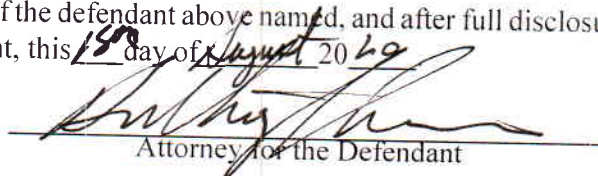 f the defendant above named, and after full disclosu
nt, this day of August 20
Attorney for the Defendant